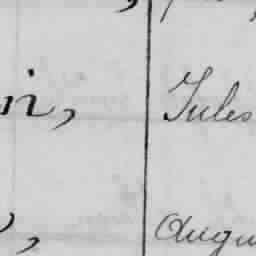 in, Jules
, Augu